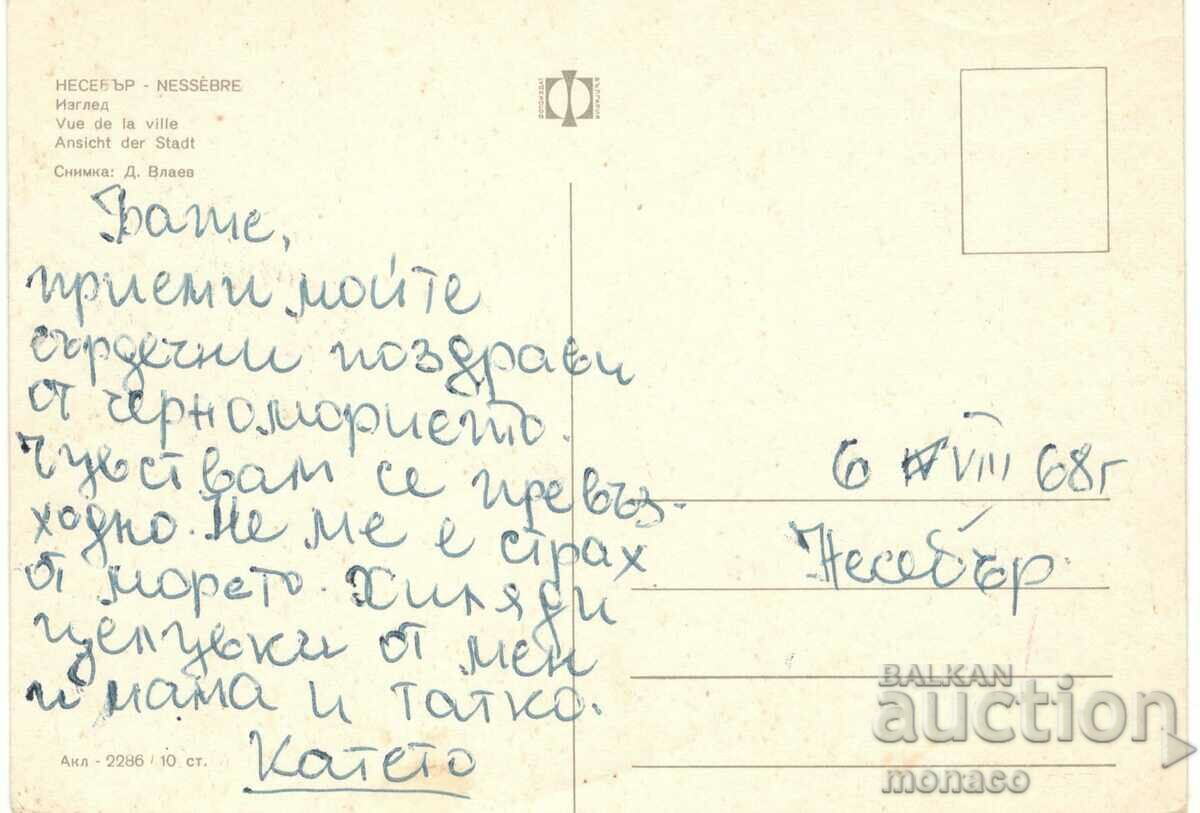 НЕСЕБЪР - NESSÈBRE
Изглед
Vue de la ville
Ansicht der Stadt
Снимка: Д. Влаев
ФОТОИЗДАТ
БЪЛГАРИЯ
Бате,
приеми мойте
сърдечни поздрави
от черноморието.
Чувствам се превъз-
ходно. Не ме е страх
от морето. Хиляди
целувки от мен
и мама и татко.
Катето
6 VIII 68г
Несебър.
Акл - 2286 / 10 ст.
BALKAN
auction
monaco